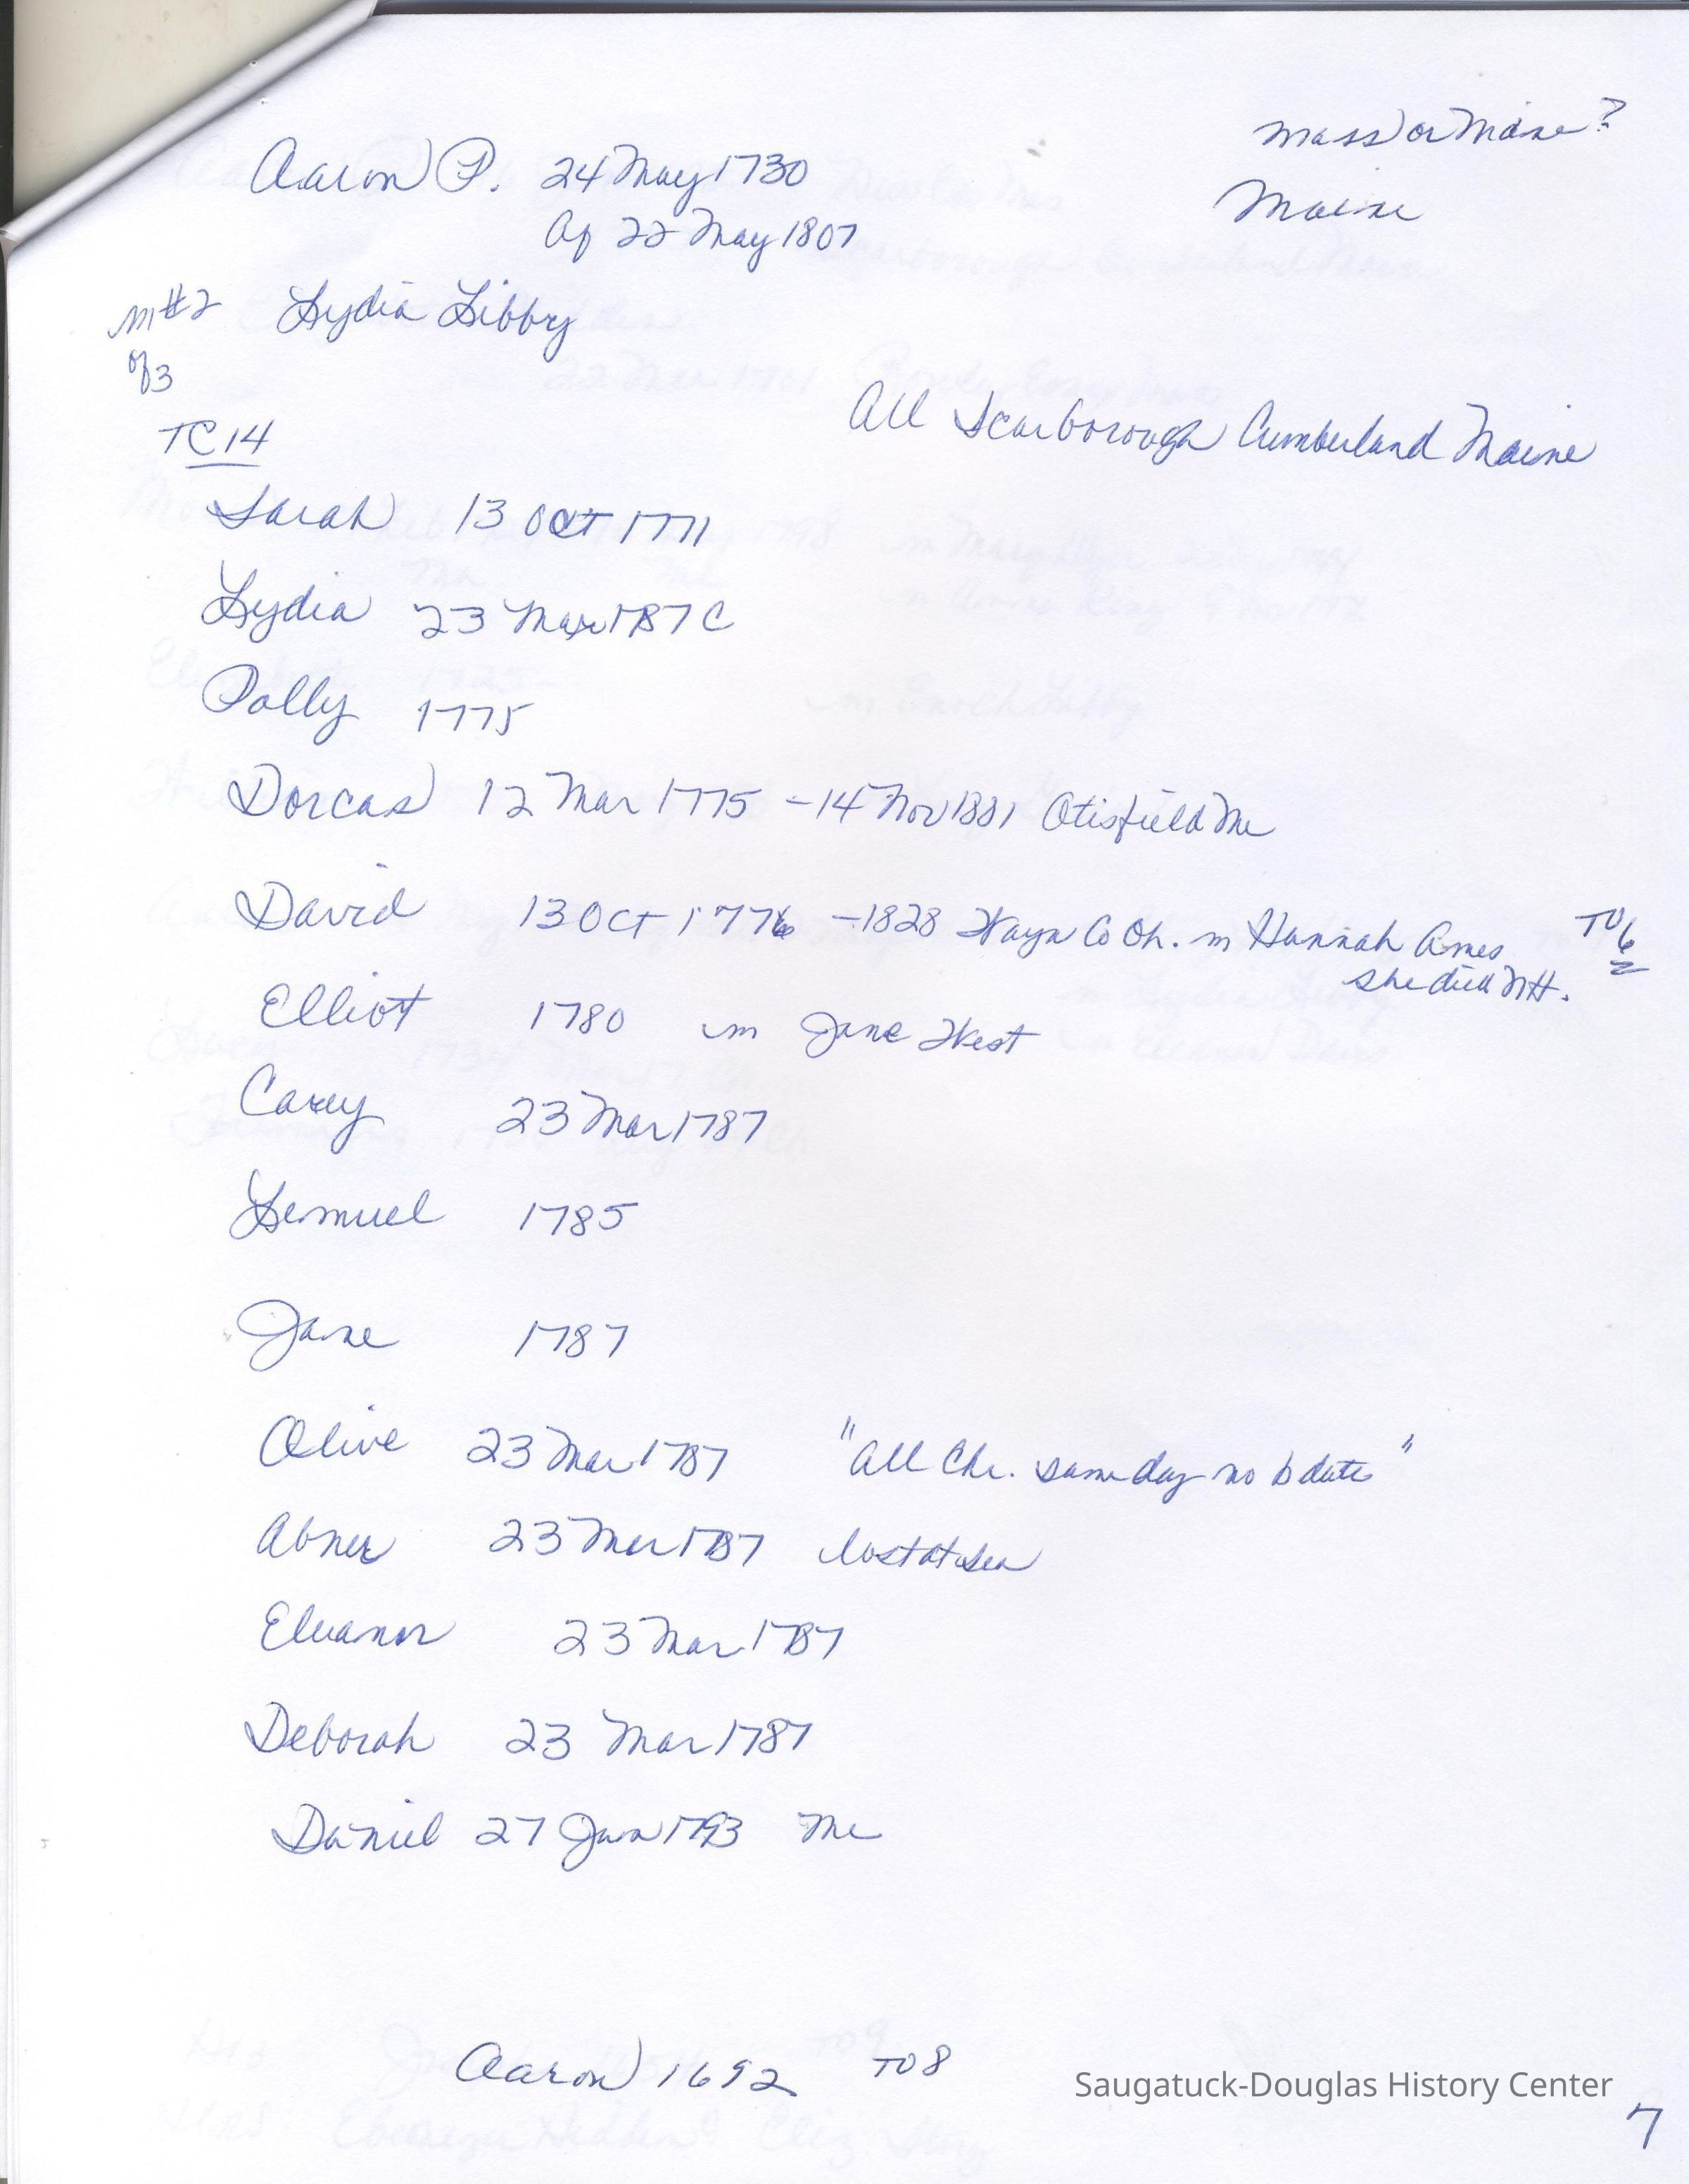 Mass or Maine?
Aaron P. 24 May 1730
Maine
22 May 1807
m #2 Lydia Libby
of 3
All Scarborough Cumberland Maine
TC 14
Sarah 13 Oct 1771
Lydia 23 Mar 1787 C
Polly 1775
Dorcas 12 Mar 1775 - 14 Nov 1881 Otisfield Me
David 13 Oct 1776 - 1828 Wayn Co Oh. m Hannah Ames TO 6
she died NH.
Elliot 1780 m Jane West
Carey 23 Mar 1787
Lemuel 1785
Jane 1787
Olive 23 Mar 1787 "All Chr. same day no b date"
Abner 23 Mar 1787 lost at sea
Eleanor 23 Mar 1787
Deborah 23 Mar 1787
Daniel 27 Jan 1793 Me
Aaron 1692 TO 8
Saugatuck-Douglas History Center
7